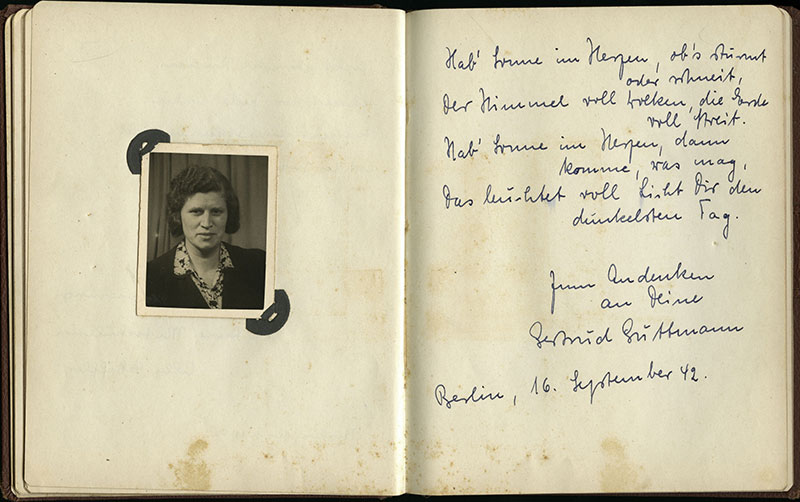 Hab' Sonne im Herzen, ob's stürmt
oder schneit,
Der Himmel voll Wolken, die Erde
voll Streit.
Hab' Sonne im Herzen, dann
komme, was mag,
Das leuchtet voll Licht Dir den
dunkelsten Tag.
Zum Andenken
an Deine
Gertrud Guttmann
Berlin, 16. September 42.